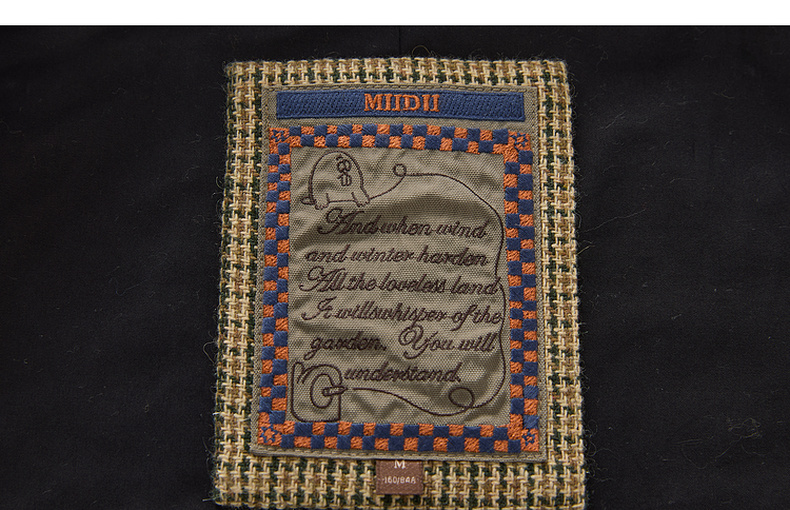 MIIDII
And when wind
and winter harden
All the loveless land
It willswhisper of the
garden. You will
understand.
M
160/84A